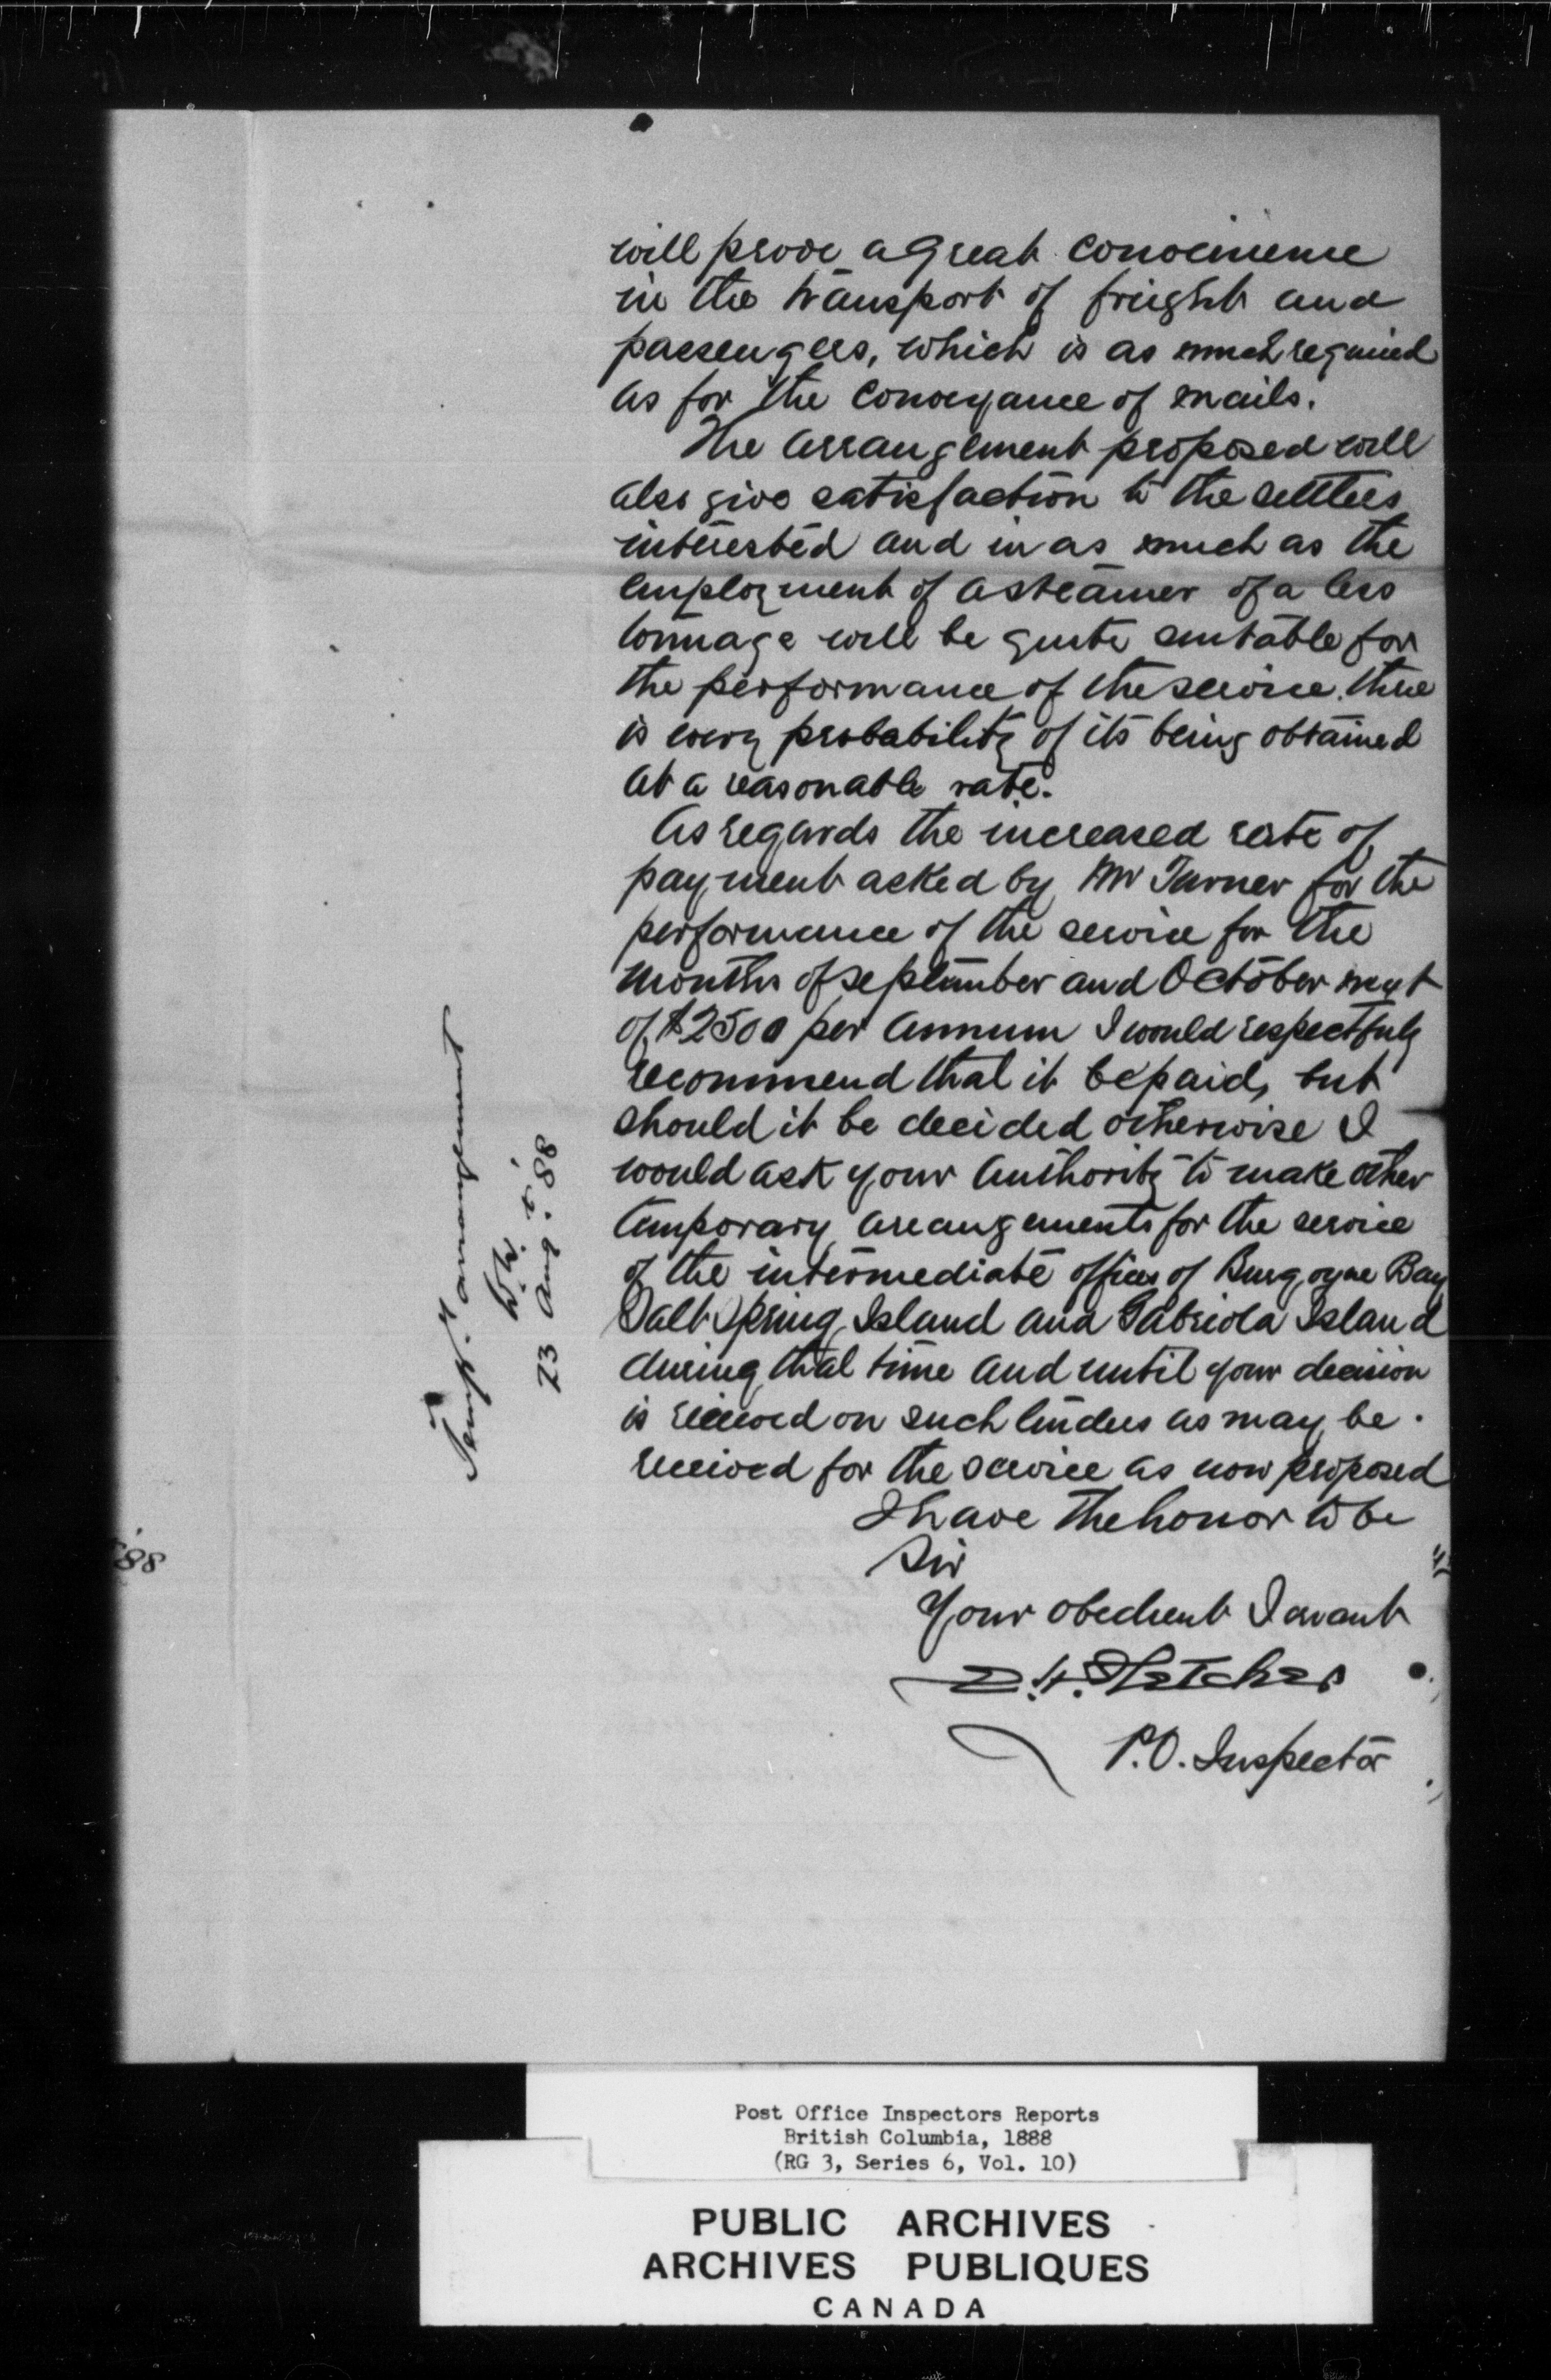 will prove a great convenience
in the transport of freight and
passengers, which is as much required
as for the conveyance of mails.
The arrangement proposed will
also give satisfaction to the settlers
interested and in as much as the
employment of a steamer of a less
tonnage will be quite suitable for
the performance of the service. there
is every probability of its being obtained
at a reasonable rate.
As regards the increased rate of
payment asked by Mr Turner for the
performance of the service for the
months of September and October next
of $2500 per annum I would respectfully
recommend that it be paid, but
should it be decided otherwise I
would ask your authority to make other
temporary arrangements for the service
of the intermediate offices of Burgoyne Bay
Salt Spring Island and Gabriola Island
during that time and until your decision
is received on such tenders as may be
received for the service as now proposed
I have the honor to be
Sir
Your obedient Servant
E.H. Fletcher
P.O. Inspector
Temp.y arrangement
23 Aug. '88
88
Post Office Inspectors Reports
British Columbia, 1888
(RG 3, Series 6, Vol. 10)
PUBLIC ARCHIVES
ARCHIVES PUBLIQUES
CANADA